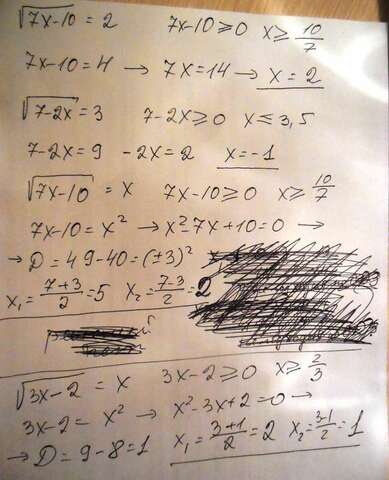 √7x-10 = 2 7x-10≥0 x≥ 10/7
7x-10=4 → 7x=14 → x=2
√7-2x=3 7-2x≥0 x≤3,5
7-2x=9 -2x=2 x=-1
√7x-10 = x 7x-10≥0 x≥10/7
7x-10=x² → x²-7x+10=0 →
→ D=49-40=(±3)²
x₁=7+3/2=5 x₂=7-3/2=2
√3x-2 = x 3x-2≥0 x≥2/3
3x-2= x² → x²-3x+2=0 →
→ D=9-8=1 x₁=3+1/2=2 x₂=3-1/2=1